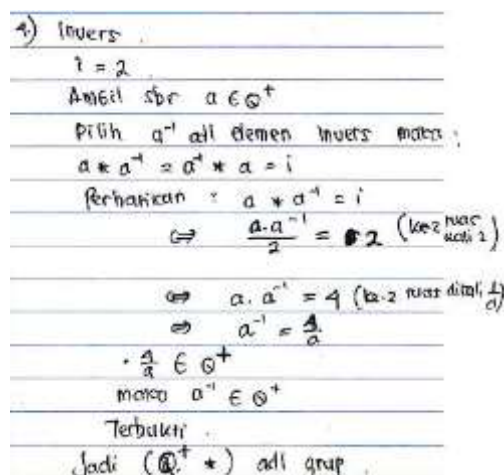 4.) Invers.
i = 2
Ambil sbr a ∈ Q⁺
Pilih a⁻¹ adl elemen invers maka :
a * a⁻¹ = a⁻¹ * a = i
Perhatikan : a * a⁻¹ = i
⇔ a.a⁻¹/2 = 2 (ke-2 ruas kali 2)
⇔ a. a⁻¹ = 4 (ke-2 ruas dikali 1/a)
⇔ a⁻¹ = 4/a
· 4/a ∈ Q⁺
maka a⁻¹ ∈ Q⁺
Terbukti.
Jadi (Q⁺ *) adl grup.